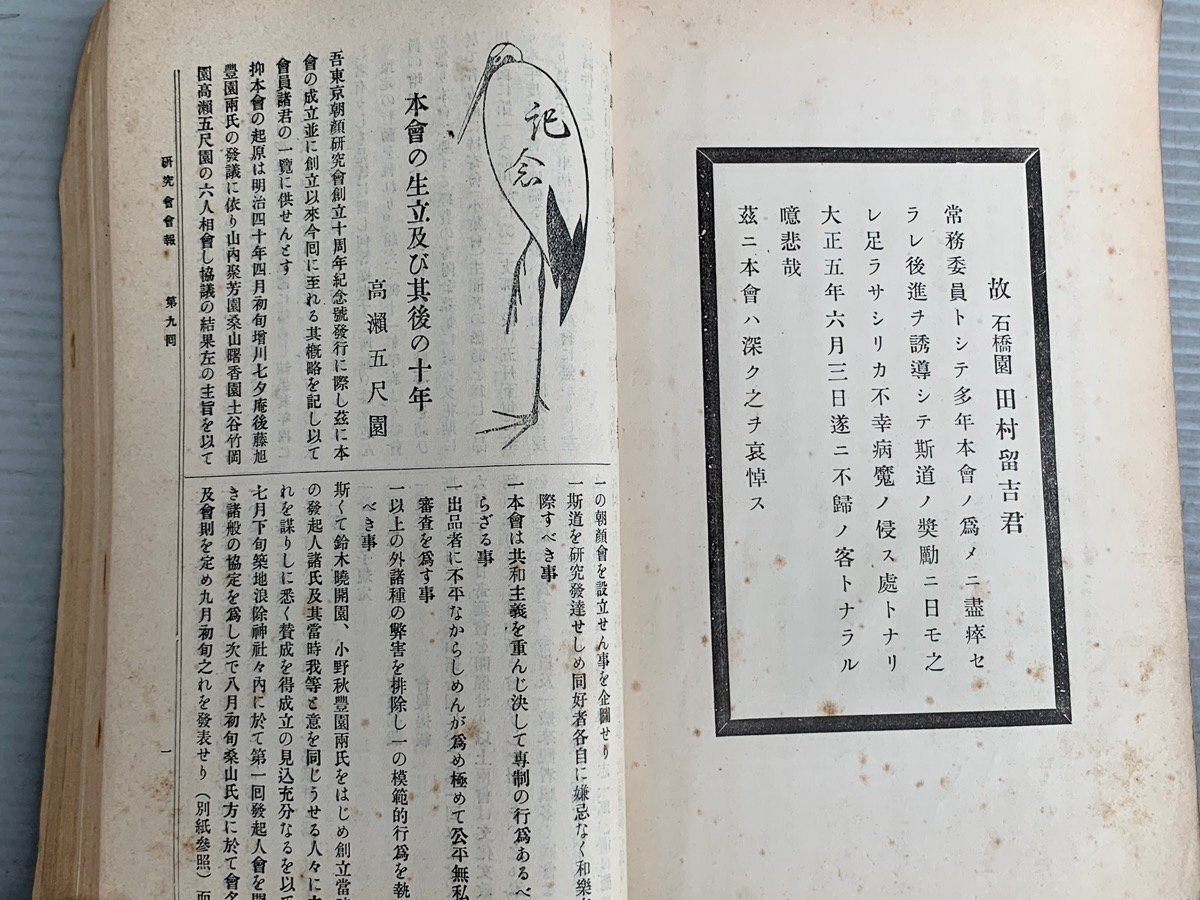 故 石橋園 田村留吉君
常務委員トシテ多年本會ノ爲メニ盡瘁セ
ラレ後進ヲ誘導シテ斯道ノ奬勵ニ日モ之
レ足ラサシリカ不幸病魔ノ侵ス處トナリ
大正五年六月三日遂ニ不歸ノ客トナラル
噫悲哉
茲ニ本會ハ深ク之ヲ哀悼ス
記念
本會の生立及び其後の十年
高瀨五尺園
吾東京朝顏硏究會創立十周年紀念號發行に際し茲に本
會の成立並に創立以來今回に至れる其槪略を記し以て
會員諸君の一覽に供せんとす
抑本會の起原は明治四十年四月初旬增川七夕庵後藤旭
豐園兩氏の發議に依り山內聚芳園桑山曙香園土谷竹岡
園高瀨五尺園の六人相會し協議の結果左の主旨を以て
一の朝顏會を設立せん事を企圖せり
一斯道を硏究發達せしめ同好者各自に嫌忌なく和樂
際すべき事
一本會は共和主義を重んじ決して專制の行爲あるべ
らざる事
一出品者に不平なからしめんが爲め極めて公平無私
審査を爲す事
一以上の外諸種の弊害を排除し一の模範的行爲を執
べき事
斯くて鈴木曉開園、小野秋豐園兩氏をはじめ創立當時
の發起人諸氏及其當時我等と意を同じうせる人々に
れを謀りしに悉く賛成を得成立の見込充分なるを以て
七月下旬築地浪除神社々內に於て第一回發起人會を開
き諸般の協定を爲し次で八月初旬桑山氏方に於て會名
及會則を定め九月初旬之れを發表せり（別紙參照）而
硏究會會報 第九回
一